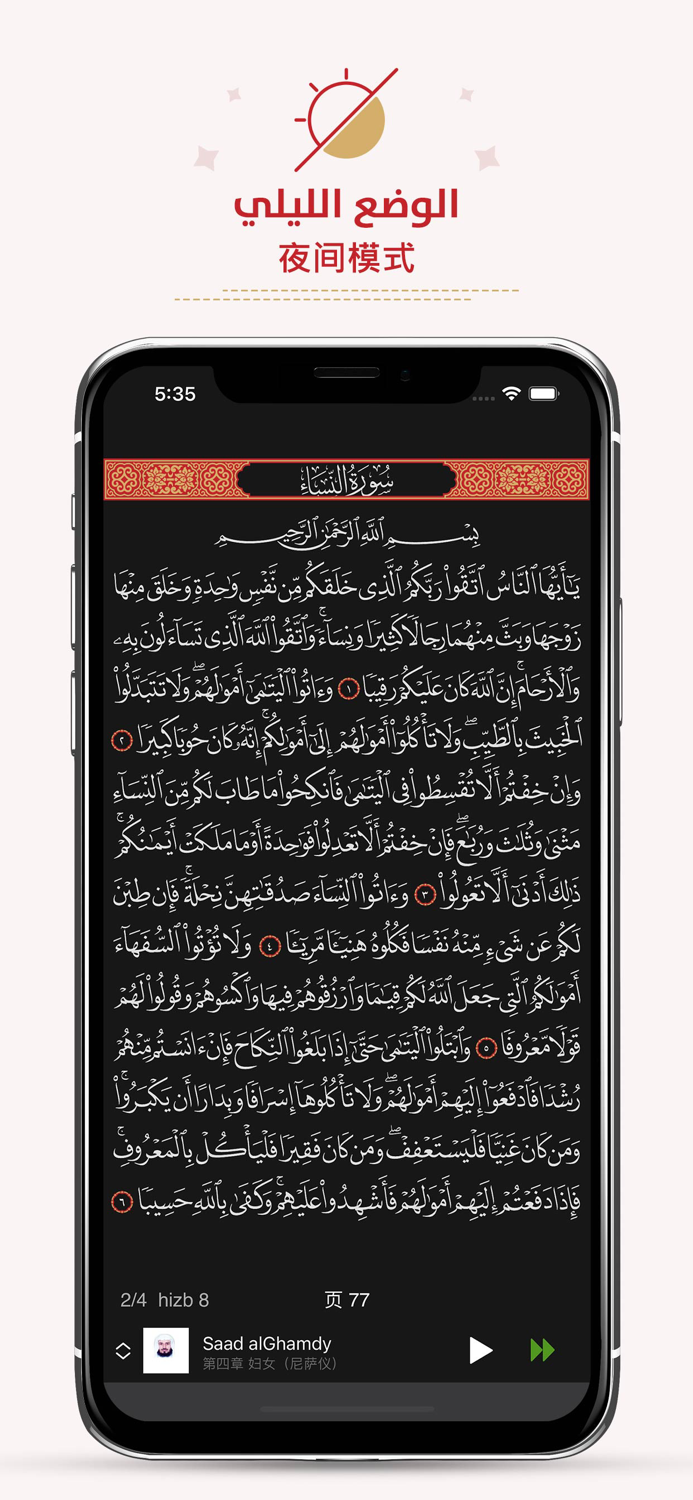 الوضع الليلي
夜间模式
5:35
سُورَةُ النِّسَاءِ
بِسْمِ ٱللَّهِ ٱلرَّحْمَٰنِ ٱلرَّحِيمِ
يَٰٓأَيُّهَا ٱلنَّاسُ ٱتَّقُوا۟ رَبَّكُمُ ٱلَّذِى خَلَقَكُم مِّن نَّفْسٍ وَٰحِدَةٍ وَخَلَقَ مِنْهَا
زَوْجَهَا وَبَثَّ مِنْهُمَا رِجَالًا كَثِيرًا وَنِسَآءً ۚ وَٱتَّقُوا۟ ٱللَّهَ ٱلَّذِى تَسَآءَلُونَ بِهِۦ
وَٱلْأَرْحَامَ ۚ إِنَّ ٱللَّهَ كَانَ عَلَيْكُمْ رَقِيبًا ١ وَءَاتُوا۟ ٱلْيَتَٰمَىٰٓ أَمْوَٰلَهُمْ ۖ وَلَا تَتَبَدَّلُوا۟
ٱلْخَبِيثَ بِٱلطَّيِّبِ ۖ وَلَا تَأْكُلُوٓا۟ أَمْوَٰلَهُمْ إِلَىٰٓ أَمْوَٰلِكُمْ ۚ إِنَّهُۥ كَانَ حُوبًا كَبِيرًا ٢
وَإِنْ خِفْتُمْ أَلَّا تُقْسِطُوا۟ فِى ٱلْيَتَٰمَىٰ فَٱنكِحُوا۟ مَا طَابَ لَكُم مِّنَ ٱلنِّسَآءِ
مَثْنَىٰ وَثُلَٰثَ وَرُبَٰعَ ۖ فَإِنْ خِفْتُمْ أَلَّا تَعْدِلُوا۟ فَوَٰحِدَةً أَوْ مَا مَلَكَتْ أَيْمَٰنُكُمْ ۚ
ذَٰلِكَ أَدْنَىٰٓ أَلَّا تَعُولُوا۟ ٣ وَءَاتُوا۟ ٱلنِّسَآءَ صَدُقَٰتِهِنَّ نِحْلَةً ۚ فَإِن طِبْنَ
لَكُمْ عَن شَىْءٍ مِّنْهُ نَفْسًا فَكُلُوهُ هَنِيٓـًٔا مَّرِيٓـًٔا ٤ وَلَا تُؤْتُوا۟ ٱلسُّفَهَآءَ
أَمْوَٰلَكُمُ ٱلَّتِى جَعَلَ ٱللَّهُ لَكُمْ قِيَٰمًا وَٱرْزُقُوهُمْ فِيهَا وَٱكْسُوهُمْ وَقُولُوا۟ لَهُمْ
قَوْلًا مَّعْرُوفًا ٥ وَٱبْتَلُوا۟ ٱلْيَتَٰمَىٰ حَتَّىٰٓ إِذَا بَلَغُوا۟ ٱلنِّكَاحَ فَإِنْ ءَانَسْتُم مِّنْهُمْ
رُشْدًا فَٱدْفَعُوٓا۟ إِلَيْهِمْ أَمْوَٰلَهُمْ ۖ وَلَا تَأْكُلُوهَآ إِسْرَافًا وَبِدَارًا أَن يَكْبَرُوا۟ ۚ
وَمَن كَانَ غَنِيًّا فَلْيَسْتَعْفِفْ ۖ وَمَن كَانَ فَقِيرًا فَلْيَأْكُلْ بِٱلْمَعْرُوفِ ۚ
فَإِذَا دَفَعْتُمْ إِلَيْهِمْ أَمْوَٰلَهُمْ فَأَشْهِدُوا۟ عَلَيْهِمْ ۚ وَكَفَىٰ بِٱللَّهِ حَسِيبًا ٦
2/4 hizb 8 页 77
Saad alGhamdy
第四章 妇女（尼萨仪）